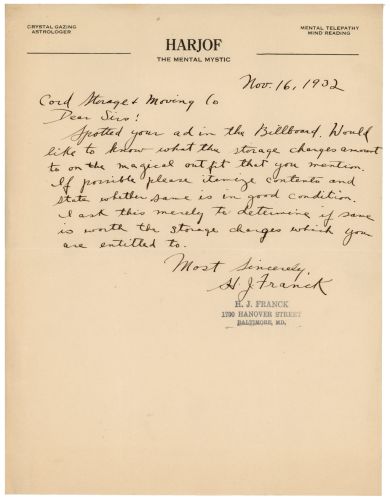 CRYSTAL GAZING
ASTROLOGER
MENTAL TELEPATHY
MIND READING
HARJOF
THE MENTAL MYSTIC
Nov. 16, 1932
Cord Storage & Moving Co
Dear Sirs:
Spotted your ad in the Billboard. Would
like to know what the storage charges amount
to on the magical outfit that you mention.
If possible please itemize contents and
state whether same is in good condition.
I ask this merely to determine if same
is worth the storage charges which you
are entitled to.
Most Sincerely,
H. J. Franck
H. J. FRANCK
1700 HANOVER STREET
BALTIMORE, MD.